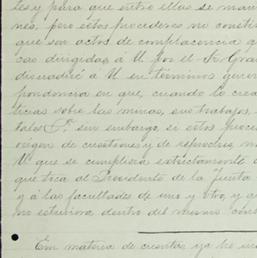 les y para que entre ellas se man
nes, pero estos procederes no consti
que son actos de complacencia q
cas dirigidas á U. por el Sr. Gra
discuadir á U en términos gener
pondencia en que, cuando lo crea
ticias sobre las minas, sus trabajos,
tales Sr. sin embargo, si estos proce
origen de cuestiones y de reproches, no
U. que se cumpliera estrictamente
que toca al Presidente de la Junta
y á las facultades de uno y otro, y q
no estuviera dentro del mismo
En materia de cuentas ya he